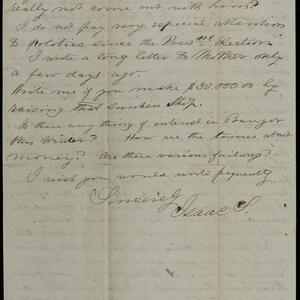 really not come out with him?
I do not pay very especial attention
to Politics, since the Pres.tial Election.
I wrote a long letter to Mother only
a few days ago.
Write me if you make $30.000.00 by
raising that sunken ship.
Is there any thing of interest in Bangor
this Winter? How are the times about
money? Are there various failures?
I wish you would write frequently
Sincerely
Isaac S.